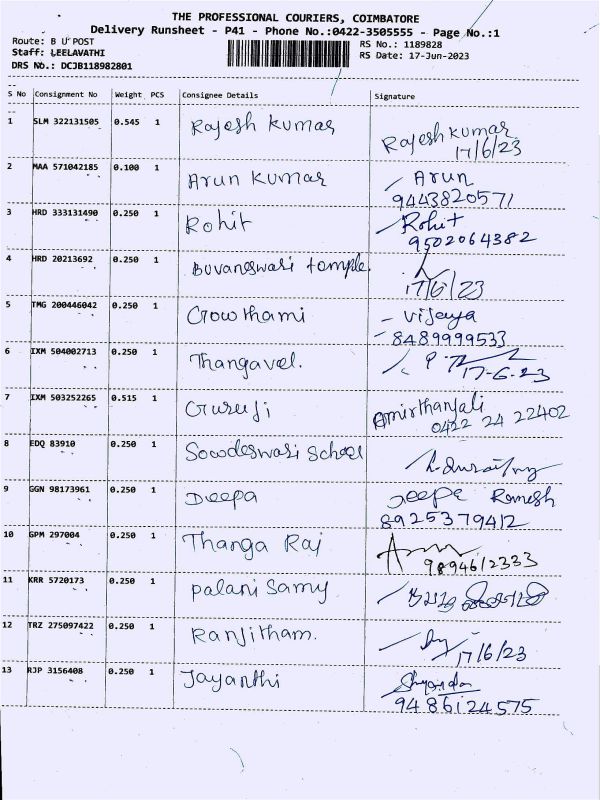 THE PROFESSIONAL COURIERS, COIMBATORE
Delivery Runsheet - P41 - Phone No.:0422-3505555 - Page No.:1
Route: B U POST
RS No.: 1189828
Staff: LEELAVATHI
RS Date: 17-Jun-2023
DRS No.: DCJB118982801
S No Consignment No Weight PCS Consignee Details Signature
1 SLM 322131505 0.545 1 Rajesh Kumar Rajesh kumar
17/6/23
2 MAA 571042185 0.100 1 Arun Kumar Arun
9443820571
3 HRD 333131490 0.250 1 Rohit Rohit
9502064382
4 HRD 20213692 0.250 1 Buvaneswari temple.
17/6/23
5 TMG 200446042 0.250 1 Gowthami Vijeya
8489999533
6 IXM 504002713 0.250 1 Thangavel.
17-6-23
7 IXM 503252265 0.515 1 Guruji Amirthanjali
0422 24 22402
8 EDQ 83910 0.250 1 Sowdeswari School
9 GGN 98173961 0.250 1 Deepa Deepa Ramesh
8925379412
10 GPM 297004 0.250 1 Thanga Raj
9894612333
11 KRR 5720173 0.250 1 Palani Samy
12 TRZ 275097422 0.250 1 Ranjitham.
17/6/23
13 RJP 3156408 0.250 1 Jayanthi
9486124575